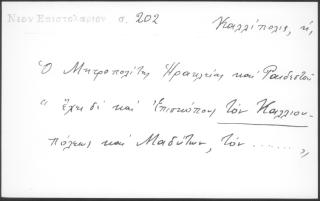 Νέον Επιστολάριον σ. 202
Καλλίπολις, ἡ,
Ὁ Μητροπολίτης Ἡρακλείας καὶ Ραιδεστοῦ
"ἔχει δὲ καὶ Ἐπισκόπους τὸν Καλλιου-
πόλεως καὶ Μαδύτων, τὸν ........,,